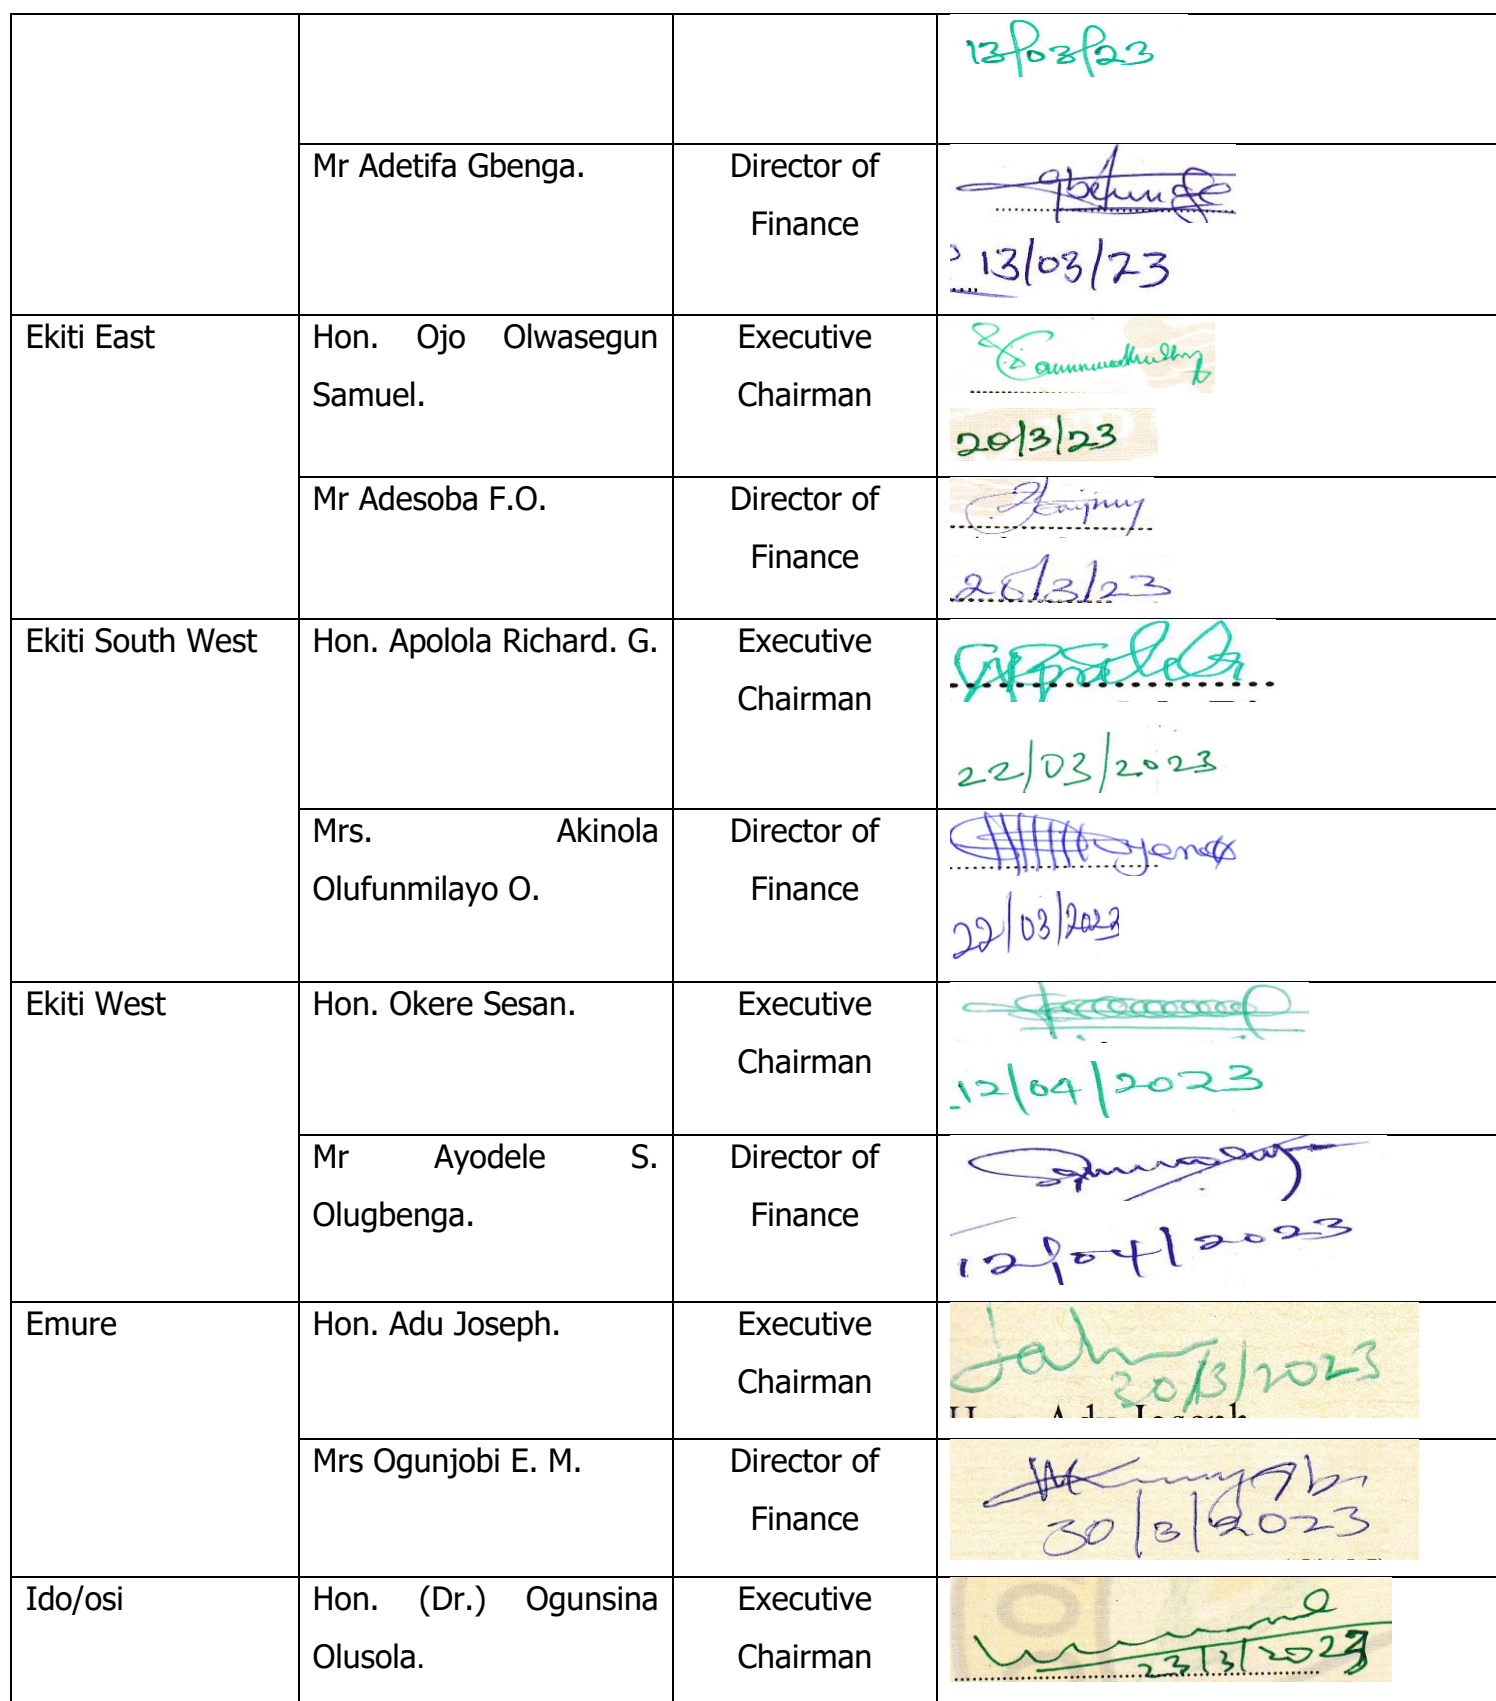 13/03/23
Mr Adetifa Gbenga.
Director of
Finance
13/03/23
Ekiti East
Hon. Ojo Olwasegun
Samuel.
Executive
Chairman
20/3/23
Mr Adesoba F.O.
Director of
Finance
Ekiti South West
Hon. Apolola Richard. G.
Executive
Chairman
22/03/2023
Mrs. Akinola
Olufunmilayo O.
Director of
Finance
22/03/2023
Ekiti West
Hon. Okere Sesan.
Executive
Chairman
12/04/2023
Mr Ayodele S.
Olugbenga.
Director of
Finance
12/04/2023
Emure
Hon. Adu Joseph.
Executive
Chairman
30/3/2023
Mrs Ogunjobi E. M.
Director of
Finance
30/3/2023
Ido/osi
Hon. (Dr.) Ogunsina
Olusola.
Executive
Chairman
23/3/2023